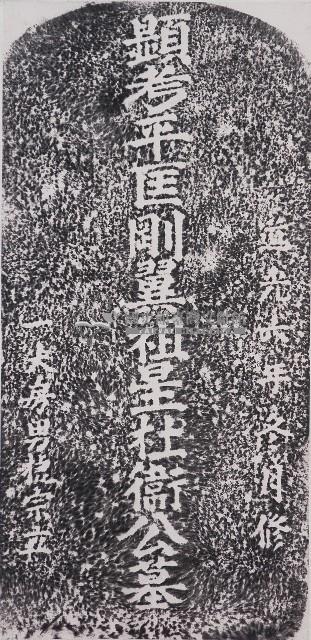 道光六年月修
顯考平匡剛祖星杜衛公墓
一大房男宗立